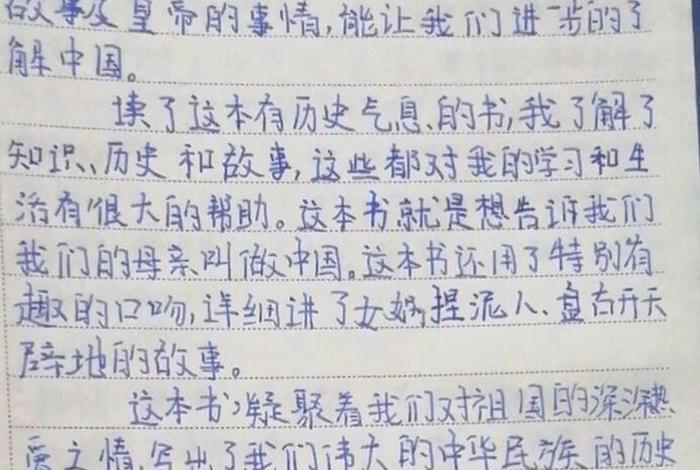 故事及皇帝的事情,能让我们进一步的了
解中国。
读了这本有历史气息的书,我了解了
知识、历史和故事,这些都对我的学习和生
活有很大的帮助。这本书就是想告诉我们
我们的母亲叫做中国。这本书还用了特别有
趣的口吻,详细讲了女娲捏泥人、盘古开天
辟地的故事。
这本书凝聚着我们对祖国的深深热
爱之情,写出了我们伟大的中华民族的历史